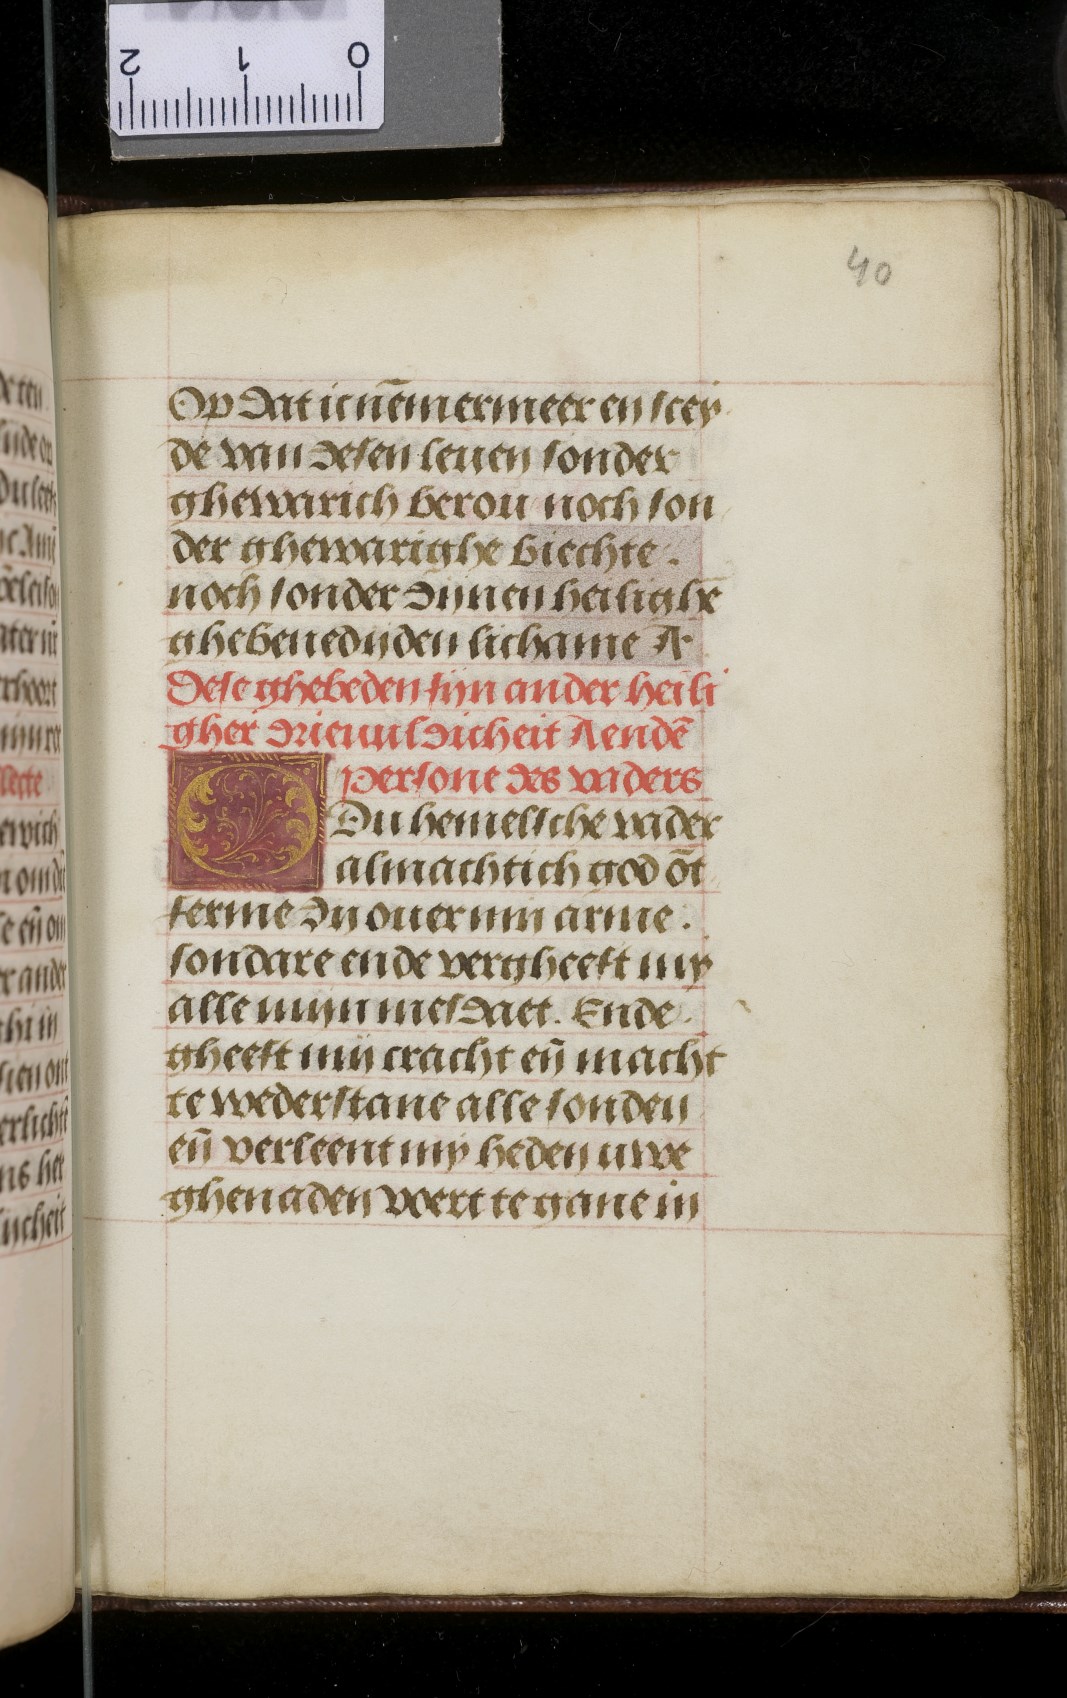 40
Op dat ic nēmermeer en scey
de van desen leuen sonder
ghewarich berou noch son
der ghewarighe biechte.
noch sonder dynnen heilighē
ghebenedyden lichame A
Dese ghebeden syn an der heili
gher drieuuldicheit Aen dē
persone des vaders
O Du hemelsche vader
almachtich god ōt
ferme dy ouer myn arme.
sondare ende vergheeft my
alle myn mesdaet. Ende
gheeft my cracht eñ macht
te wederstane alle sonden
eñ verleent my heden uwe
ghenaden wert te gane in